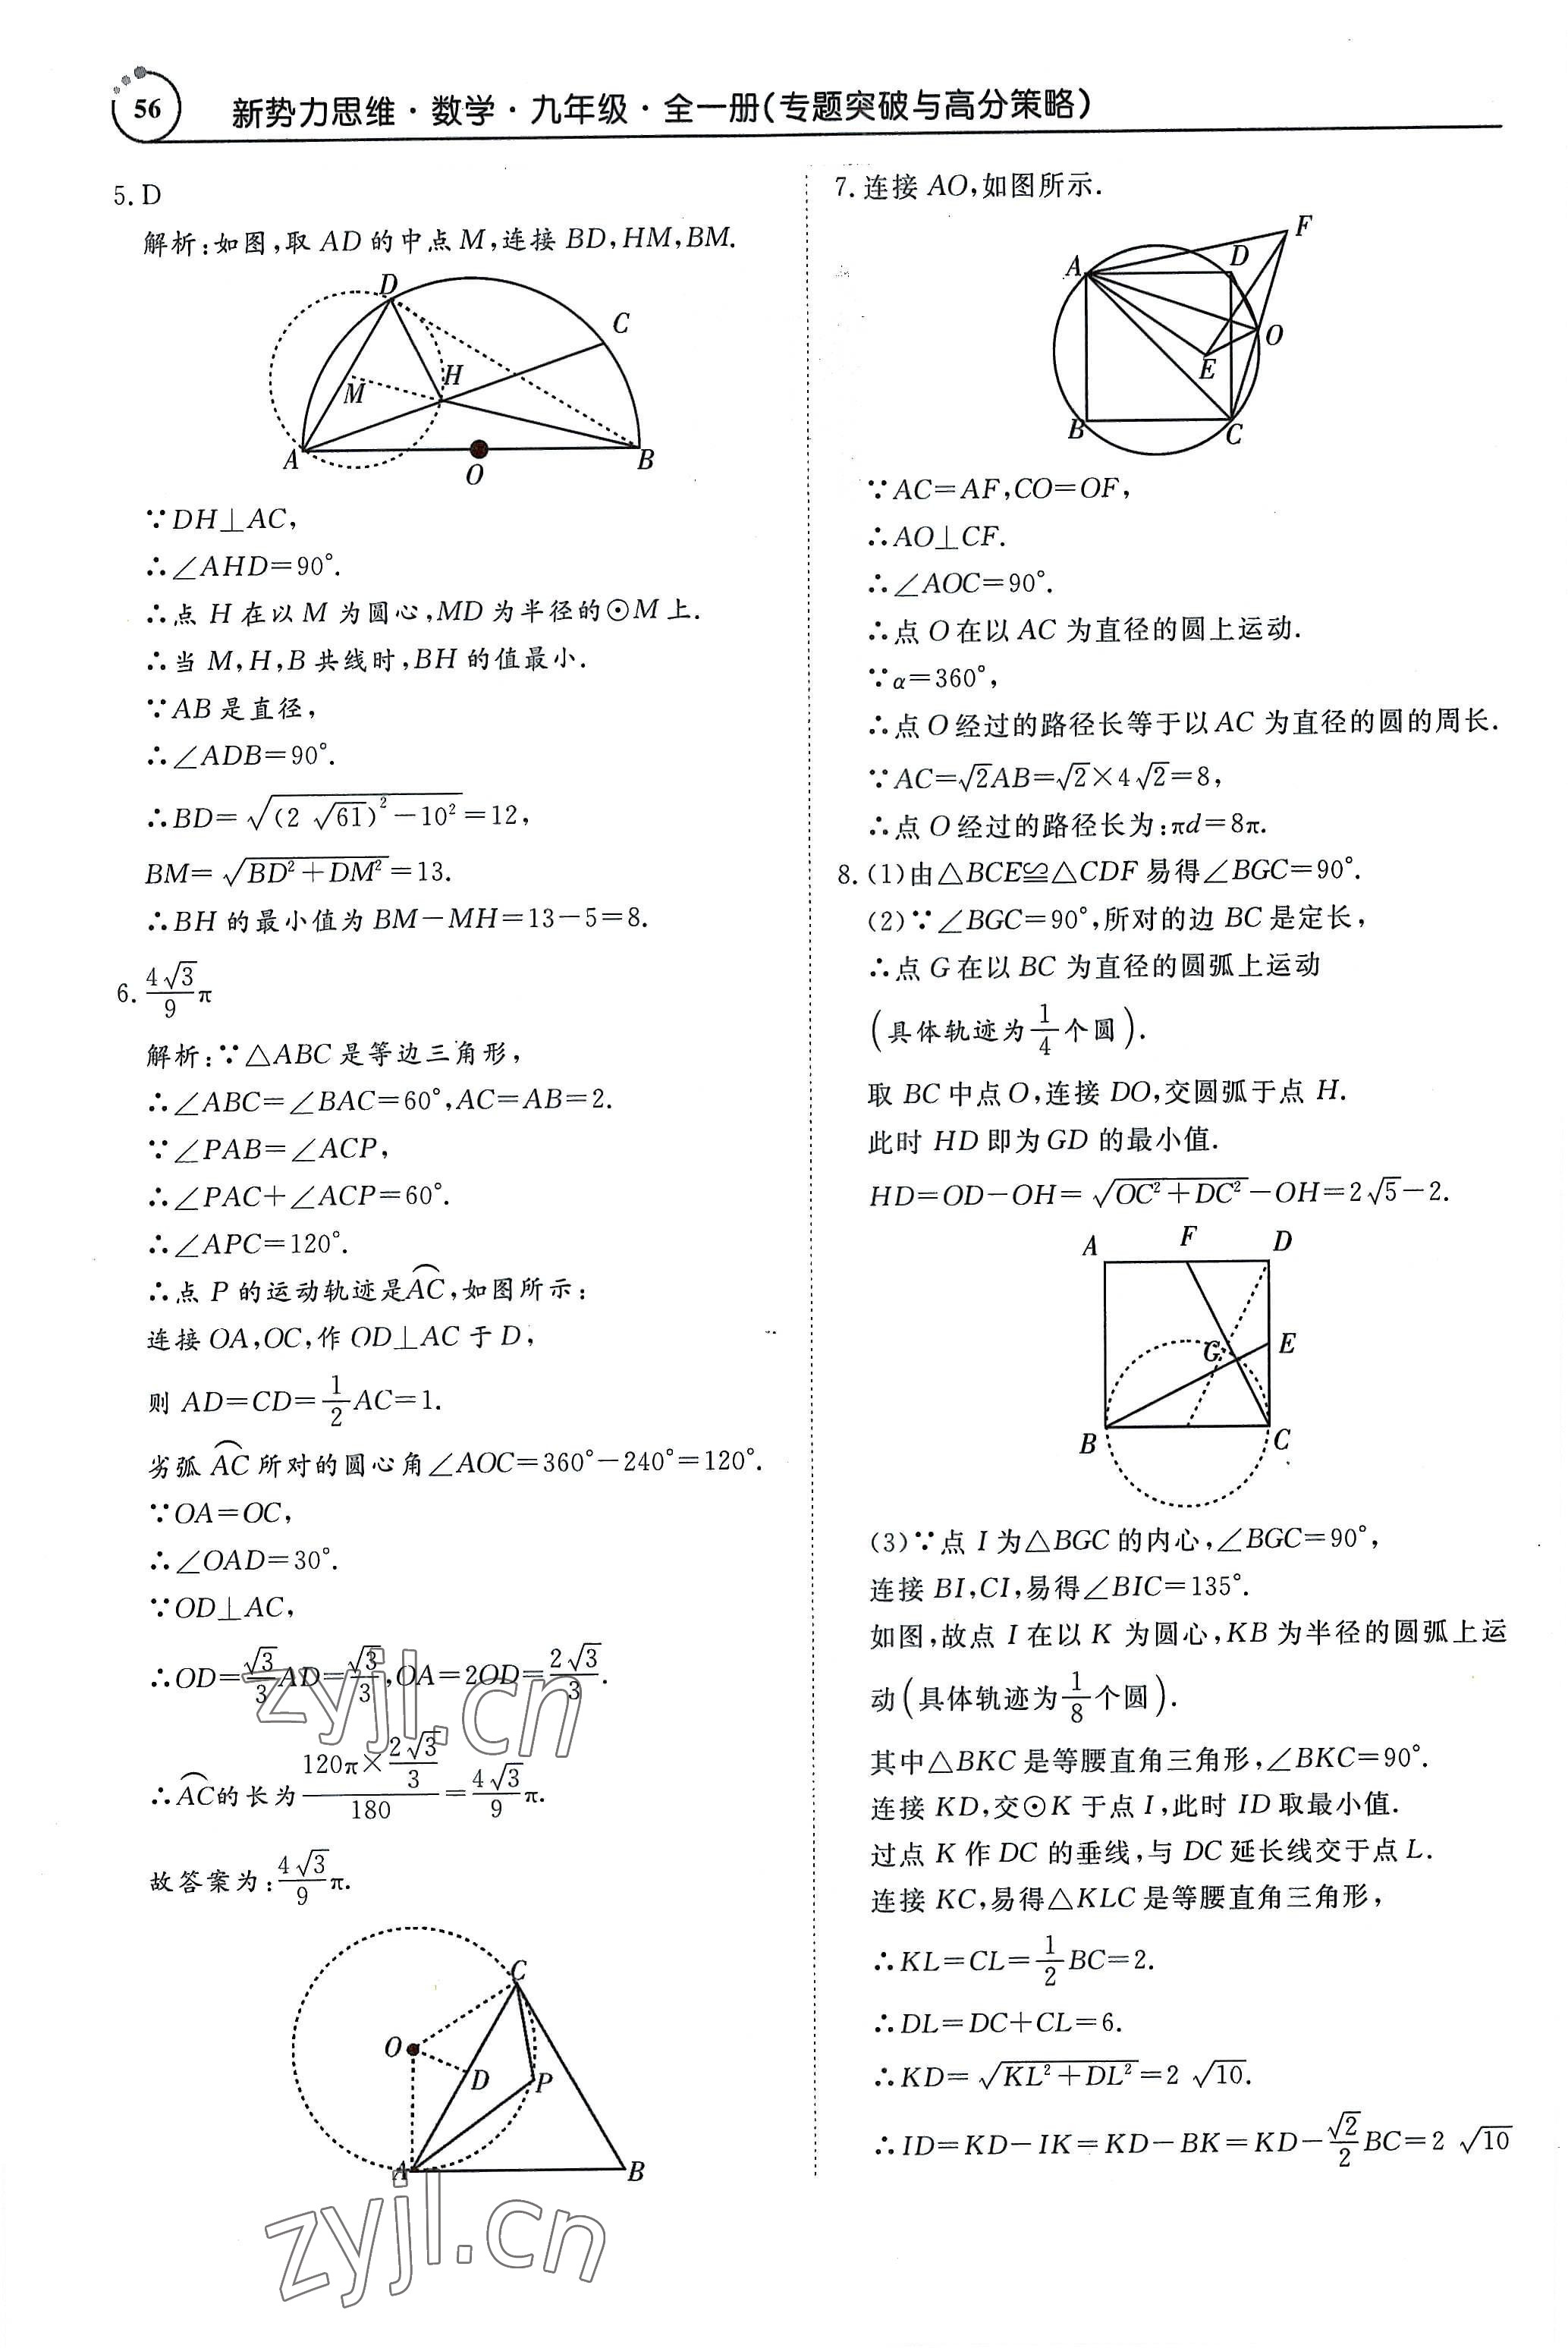 56
新势力思维·数学·九年级·全一册(专题突破与高分策略)
5. D
解析:如图,取 AD 的中点 M,连接 BD,HM,BM.
D
C
M
H
A
O
B
∵DH⊥AC,
∴∠AHD=90°.
∴点 H 在以 M 为圆心,MD 为半径的⊙M 上.
∴当 M,H,B 共线时,BH 的值最小.
∵AB 是直径,
∴∠ADB=90°.
∴BD=√((2√61)²-10²)=12,
BM=√(BD²+DM²)=13.
∴BH 的最小值为 BM-MH=13-5=8.
6. 4√3/9 π
解析:∵△ABC 是等边三角形,
∴∠ABC=∠BAC=60°,AC=AB=2.
∵∠PAB=∠ACP,
∴∠PAC+∠ACP=60°.
∴∠APC=120°.
∴点 P 的运动轨迹是⌒AC,如图所示:
连接 OA,OC,作 OD⊥AC 于 D,
则 AD=CD=1/2 AC=1.
劣弧 ⌒AC 所对的圆心角∠AOC=360°-240°=120°.
∵OA=OC,
∴∠OAD=30°.
∵OD⊥AC,
∴OD=√3/3 AD=√3/3,OA=2OD=2√3/3.
∴⌒AC的长为 (120π×2√3/3)/180=4√3/9 π.
故答案为:4√3/9 π.
C
O
D
P
A
B
zyjl.cn
zyjl.cn
7. 连接 AO,如图所示.
F
A
D
O
E
B
C
∵AC=AF,CO=OF,
∴AO⊥CF.
∴∠AOC=90°.
∴点 O 在以 AC 为直径的圆上运动.
∵α=360°,
∴点 O 经过的路径长等于以 AC 为直径的圆的周长.
∵AC=√2AB=√2×4√2=8,
∴点 O 经过的路径长为:πd=8π.
8. (1)由△BCE≌△CDF 易得∠BGC=90°.
(2)∵∠BGC=90°,所对的边 BC 是定长,
∴点 G 在以 BC 为直径的圆弧上运动
(具体轨迹为1/4个圆).
取 BC 中点 O,连接 DO,交圆弧于点 H.
此时 HD 即为 GD 的最小值.
HD=OD-OH=√(OC²+DC²)-OH=2√5-2.
A
F
D
G
E
B
C
(3)∵点 I 为△BGC 的内心,∠BGC=90°,
连接 BI,CI,易得∠BIC=135°.
如图,故点 I 在以 K 为圆心,KB 为半径的圆弧上运
动(具体轨迹为1/8个圆).
其中△BKC 是等腰直角三角形,∠BKC=90°.
连接 KD,交⊙K 于点 I,此时 ID 取最小值.
过点 K 作 DC 的垂线,与 DC 延长线交于点 L.
连接 KC,易得△KLC 是等腰直角三角形,
∴KL=CL=1/2 BC=2.
∴DL=DC+CL=6.
∴KD=√(KL²+DL²)=2√10.
∴ID=KD-IK=KD-BK=KD-√2/2 BC=2√10